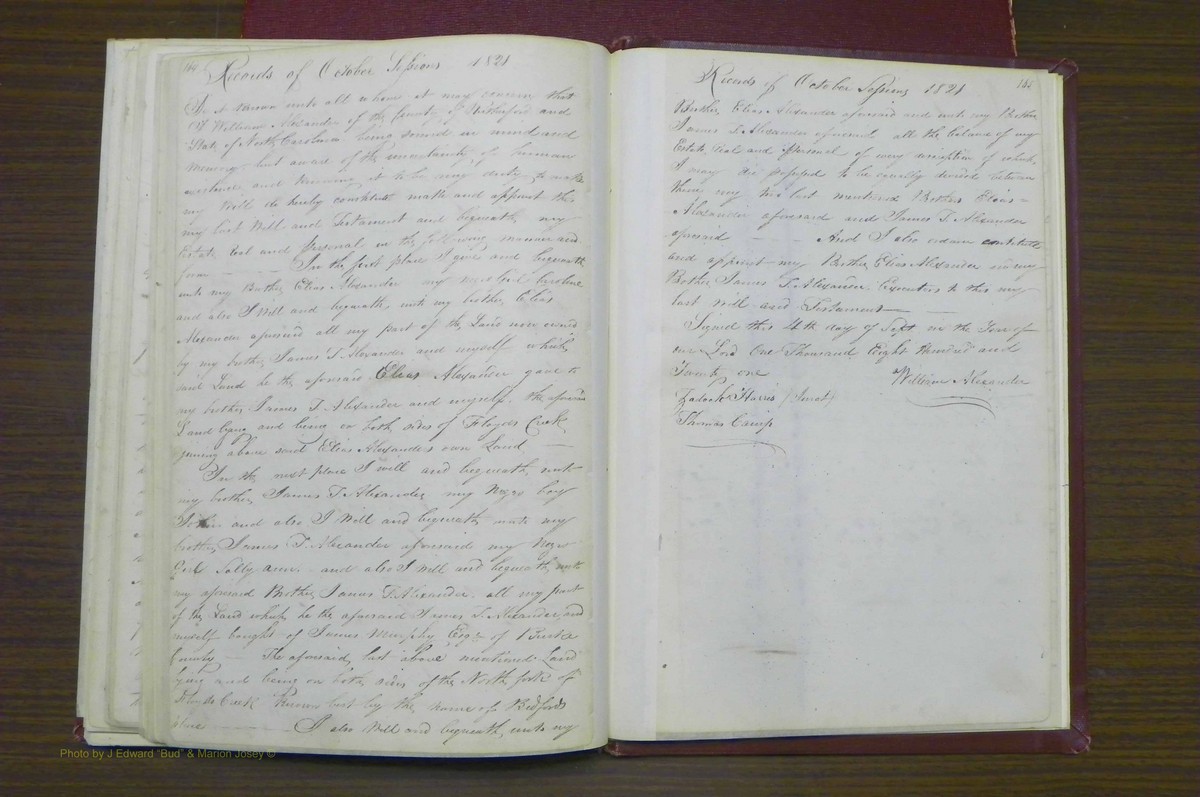 144 Records of October Sessions 1821
Be it known unto all whome it may concern that
I William Alexander of the County of Rutherford and
State of North Carolina being sound in mind and
Memory but aware of the uncertainty of human
existence and knowing it to be my duty to make
my Will do hereby constitute make and appoint this
my last Will and Testament and bequeath my
Estate Real and Personal in the following manner and
form — — In the first place I give and bequeath
unto my Brother Elias Alexander my negro Girl
and also I Will and bequeath unto my brother Elias
Alexander aforesaid all my part of the Land now owned
by my brother James T. Alexander and myself which
said Land he the aforesaid Elias Alexander gave to
my brother James T. Alexander and myself. the aforesaid
Land lying and being on both sides of Floyds Creek
joining above said Elias Alexanders own Land —
In the next place I will and bequeath unto
my brother James T. Alexander my Negro boy
John and also I Will and bequeath unto my
brother James T. Alexander aforesaid my Negro
Girl Sally ann. and also I Will and bequeath unto
my aforesaid Brother James T. Alexander. all my part
of the Land which he the aforesaid James T. Alexander and
myself bought of James Murphy Esqr of Burke
County — The aforesaid last above mentioned Land
lying and being on both sides of the North fork of
Floyds Creek Known best by the name of Bedfords
place — — I also Will and bequeath unto my
Records of October Sessions 1821
Brother Elias Alexander aforesaid and unto my Brother
James T. Alexander aforesaid all the balance of my
Estate Real and Personal of every description of which
I may die possessed to be equally divided between
them my two last mentioned Brothers Elias
Alexander aforesaid and James T. Alexander
aforesaid — — And I also ordain constitute
and appoint my Brother Elias Alexander my
Brother James T. Alexander Executors to this my
last Will and Testament —
Signed this 4th day of Sept in the Year of
our Lord One Thousand Eight Hundred and
Twenty one William Alexander
Zadock Harris (Jurat)
Thomas Camp
Photo by J Edward "Bud" & Marion Josey ©